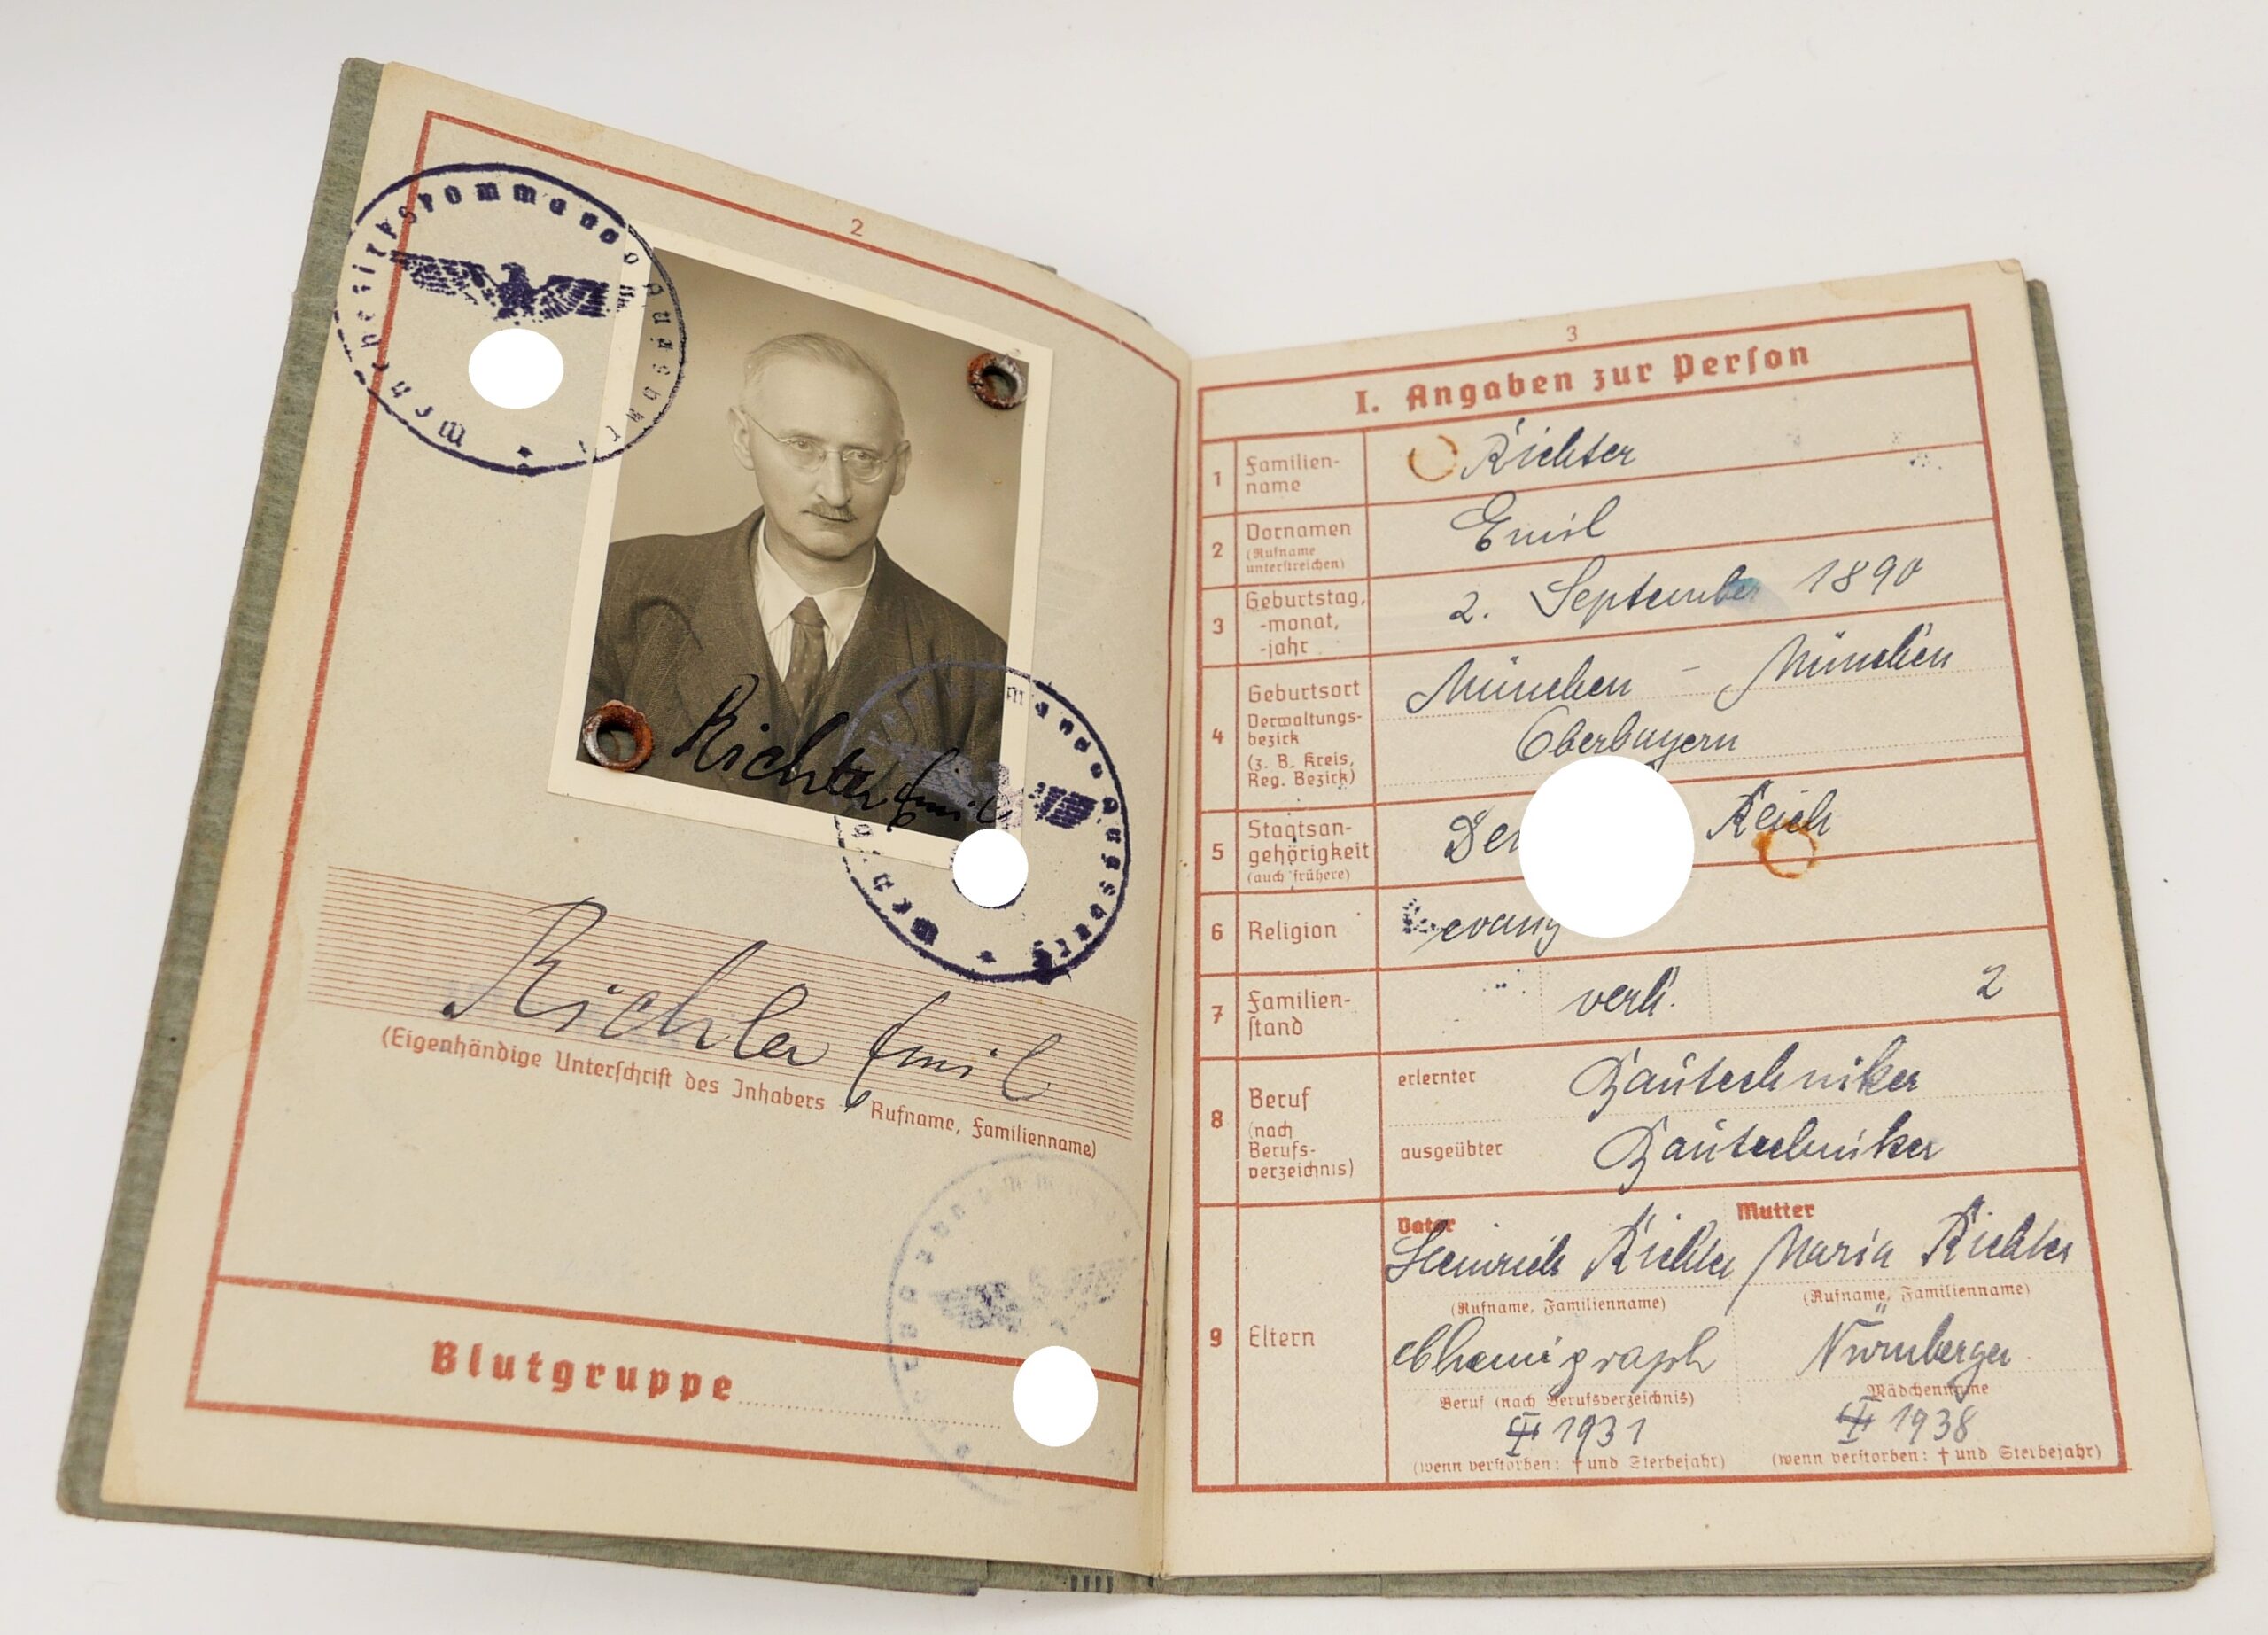 2
Wehrbezirkskommando
Richter Emil
Richter Emil
(Eigenhändige Unterschrift des Inhabers Rufname, Familienname)
Blutgruppe
3
I. Angaben zur Person
1 Familien-
name
Richter
2 Vornamen
(Rufname
unterstreichen)
Emil
3 Geburtstag,
-monat,
-jahr
2. September 1890
4 Geburtsort
Verwaltungs-
bezirk
(z. B. Kreis,
Reg. Bezirk)
München – München
Oberbayern
5 Staatsan-
gehörigkeit
(auch frühere)
Reich
6 Religion
evang
7 Familien-
stand
verh. 2
8 Beruf
(nach
Berufs-
verzeichnis)
erlernter Bautechniker
ausgeübter Bautechniker
9 Eltern
Vater Mutter
Heinrich Richter Maria Richter
(Rufname, Familienname) (Rufname, Familienname)
Chemigraph Nürnberger
Beruf (nach Berufsverzeichnis) Mädchenname
1931 1938
(wenn verstorben: † und Sterbejahr) (wenn verstorben: † und Sterbejahr)